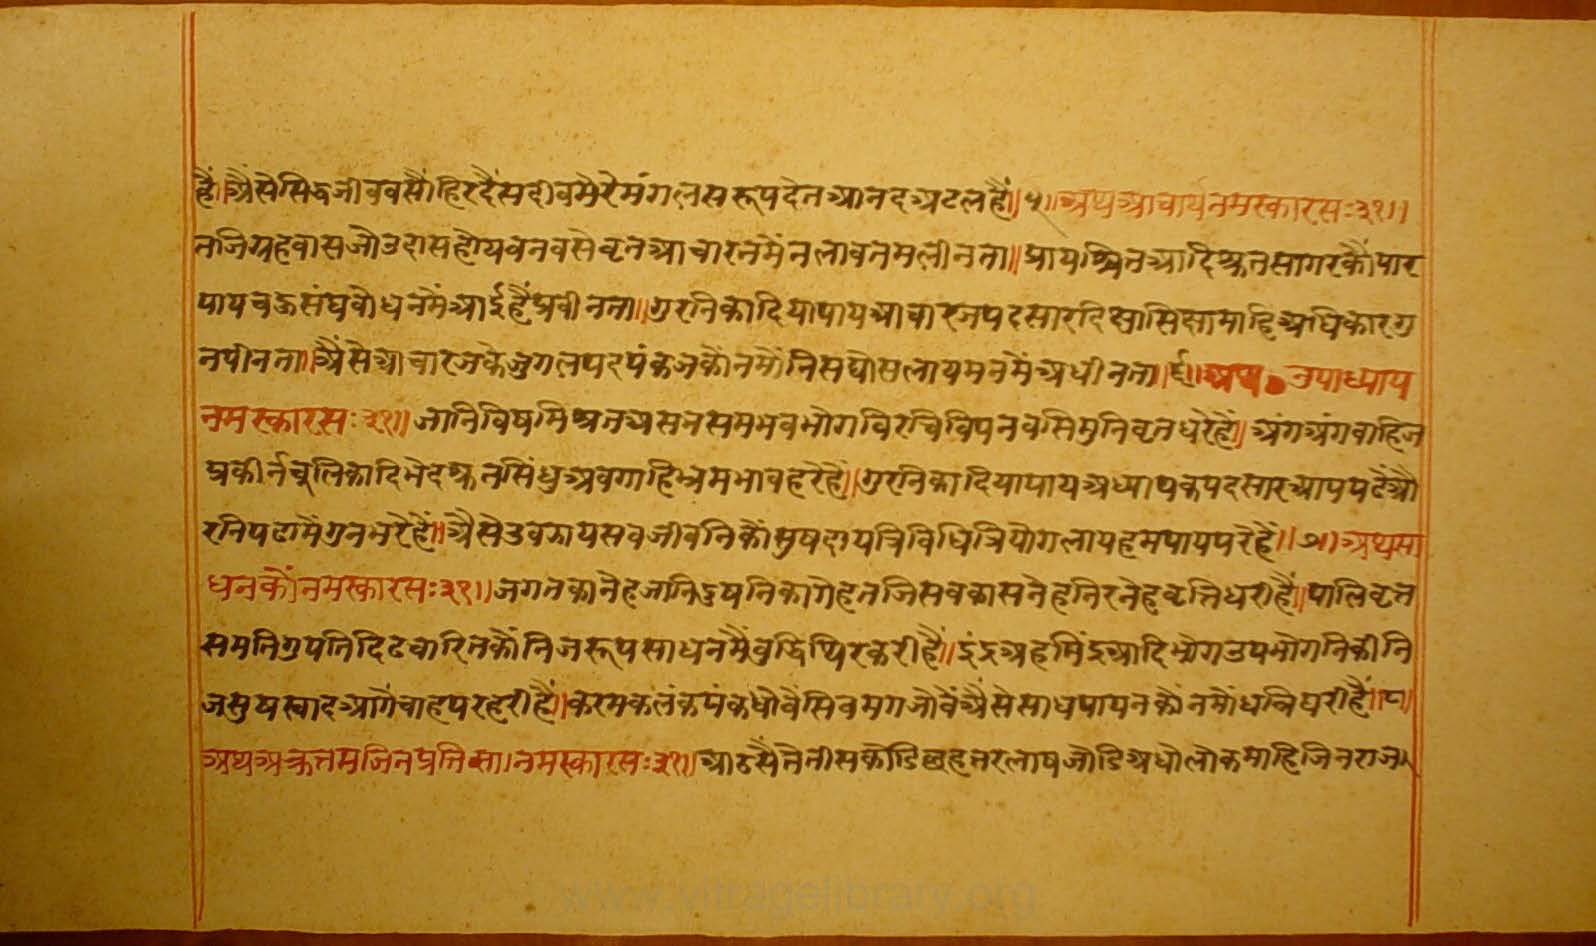 हैं॥ अैसे सिद्ध जीव वसौ हिरदै सदीव मेरे मंगल सरूप देत आनद अटल हैं॥५॥ अथ आचार्य नमस्कार सः ३१॥
तजि ग्रहवास जौ उदास होय वन वसे वृत आचारन मैं न लावत मलीनता॥ प्रायश्चित आदि श्रुतसागर कौ पार
पाय चऊ संघ बोधन मैं आई हैं प्रवीनता॥ गुर निका दिया पाय आचारज पद सार दिक्षा सिक्षा मांहि अधिकार गु
न पीनता॥ अैसे आचारज के जुगल पद पंकज कौं नमौं निस घोस लाय मन मैं अधीनता॥६॥ अथ उपाध्याय
नमस्कार सः ३१॥ जानि विष मिश्रत असन सम भव भोग विरचि विपन वसि मुनि वृत धरे हैं॥ अंग अंग वाहिज
प्रकीर्न चूलिकादि भेद श्रुत सिंधु अवगाहि भ्रम भाव हरे हैं॥ गुर निका दिया पाय अध्यापक पद सार आप पढैं औ
रनि पढामैं गुन भरे हैं॥ अैसे उवझाय सव जीवनि कौं सुषदाय त्रिविधि त्रियोग लाय हम पाय परे हैं॥७॥ अथ सा
धन कौं नमस्कार सः ३१॥ जगत का नेह जानि दुषनि का गेह तजि सवका सनेह निरनेह वृत्ति धरी है॥ पालि वृत
समति गुपति दिढ चारित कौं निज रूप साधन मैं बुद्धि थिर करी है॥ इंद्र अहमिंद्र आदि भोग उपभोगनि की नि
ज सुष स्वाद आगैं चाह परहरी है॥ करम कलंक पंक धोवैं सिवमग जोवैं अैसे साध पायन कौं नमौं धन्नि घरी है॥८॥
अथ अकृत्तम जिन प्रतिमा नमस्कार सः ३१॥ आठसै तेतीस कोडि वहत्तर लाष जोडि अधोलोक मांहि जिनराज
www.vitragelibrary.org